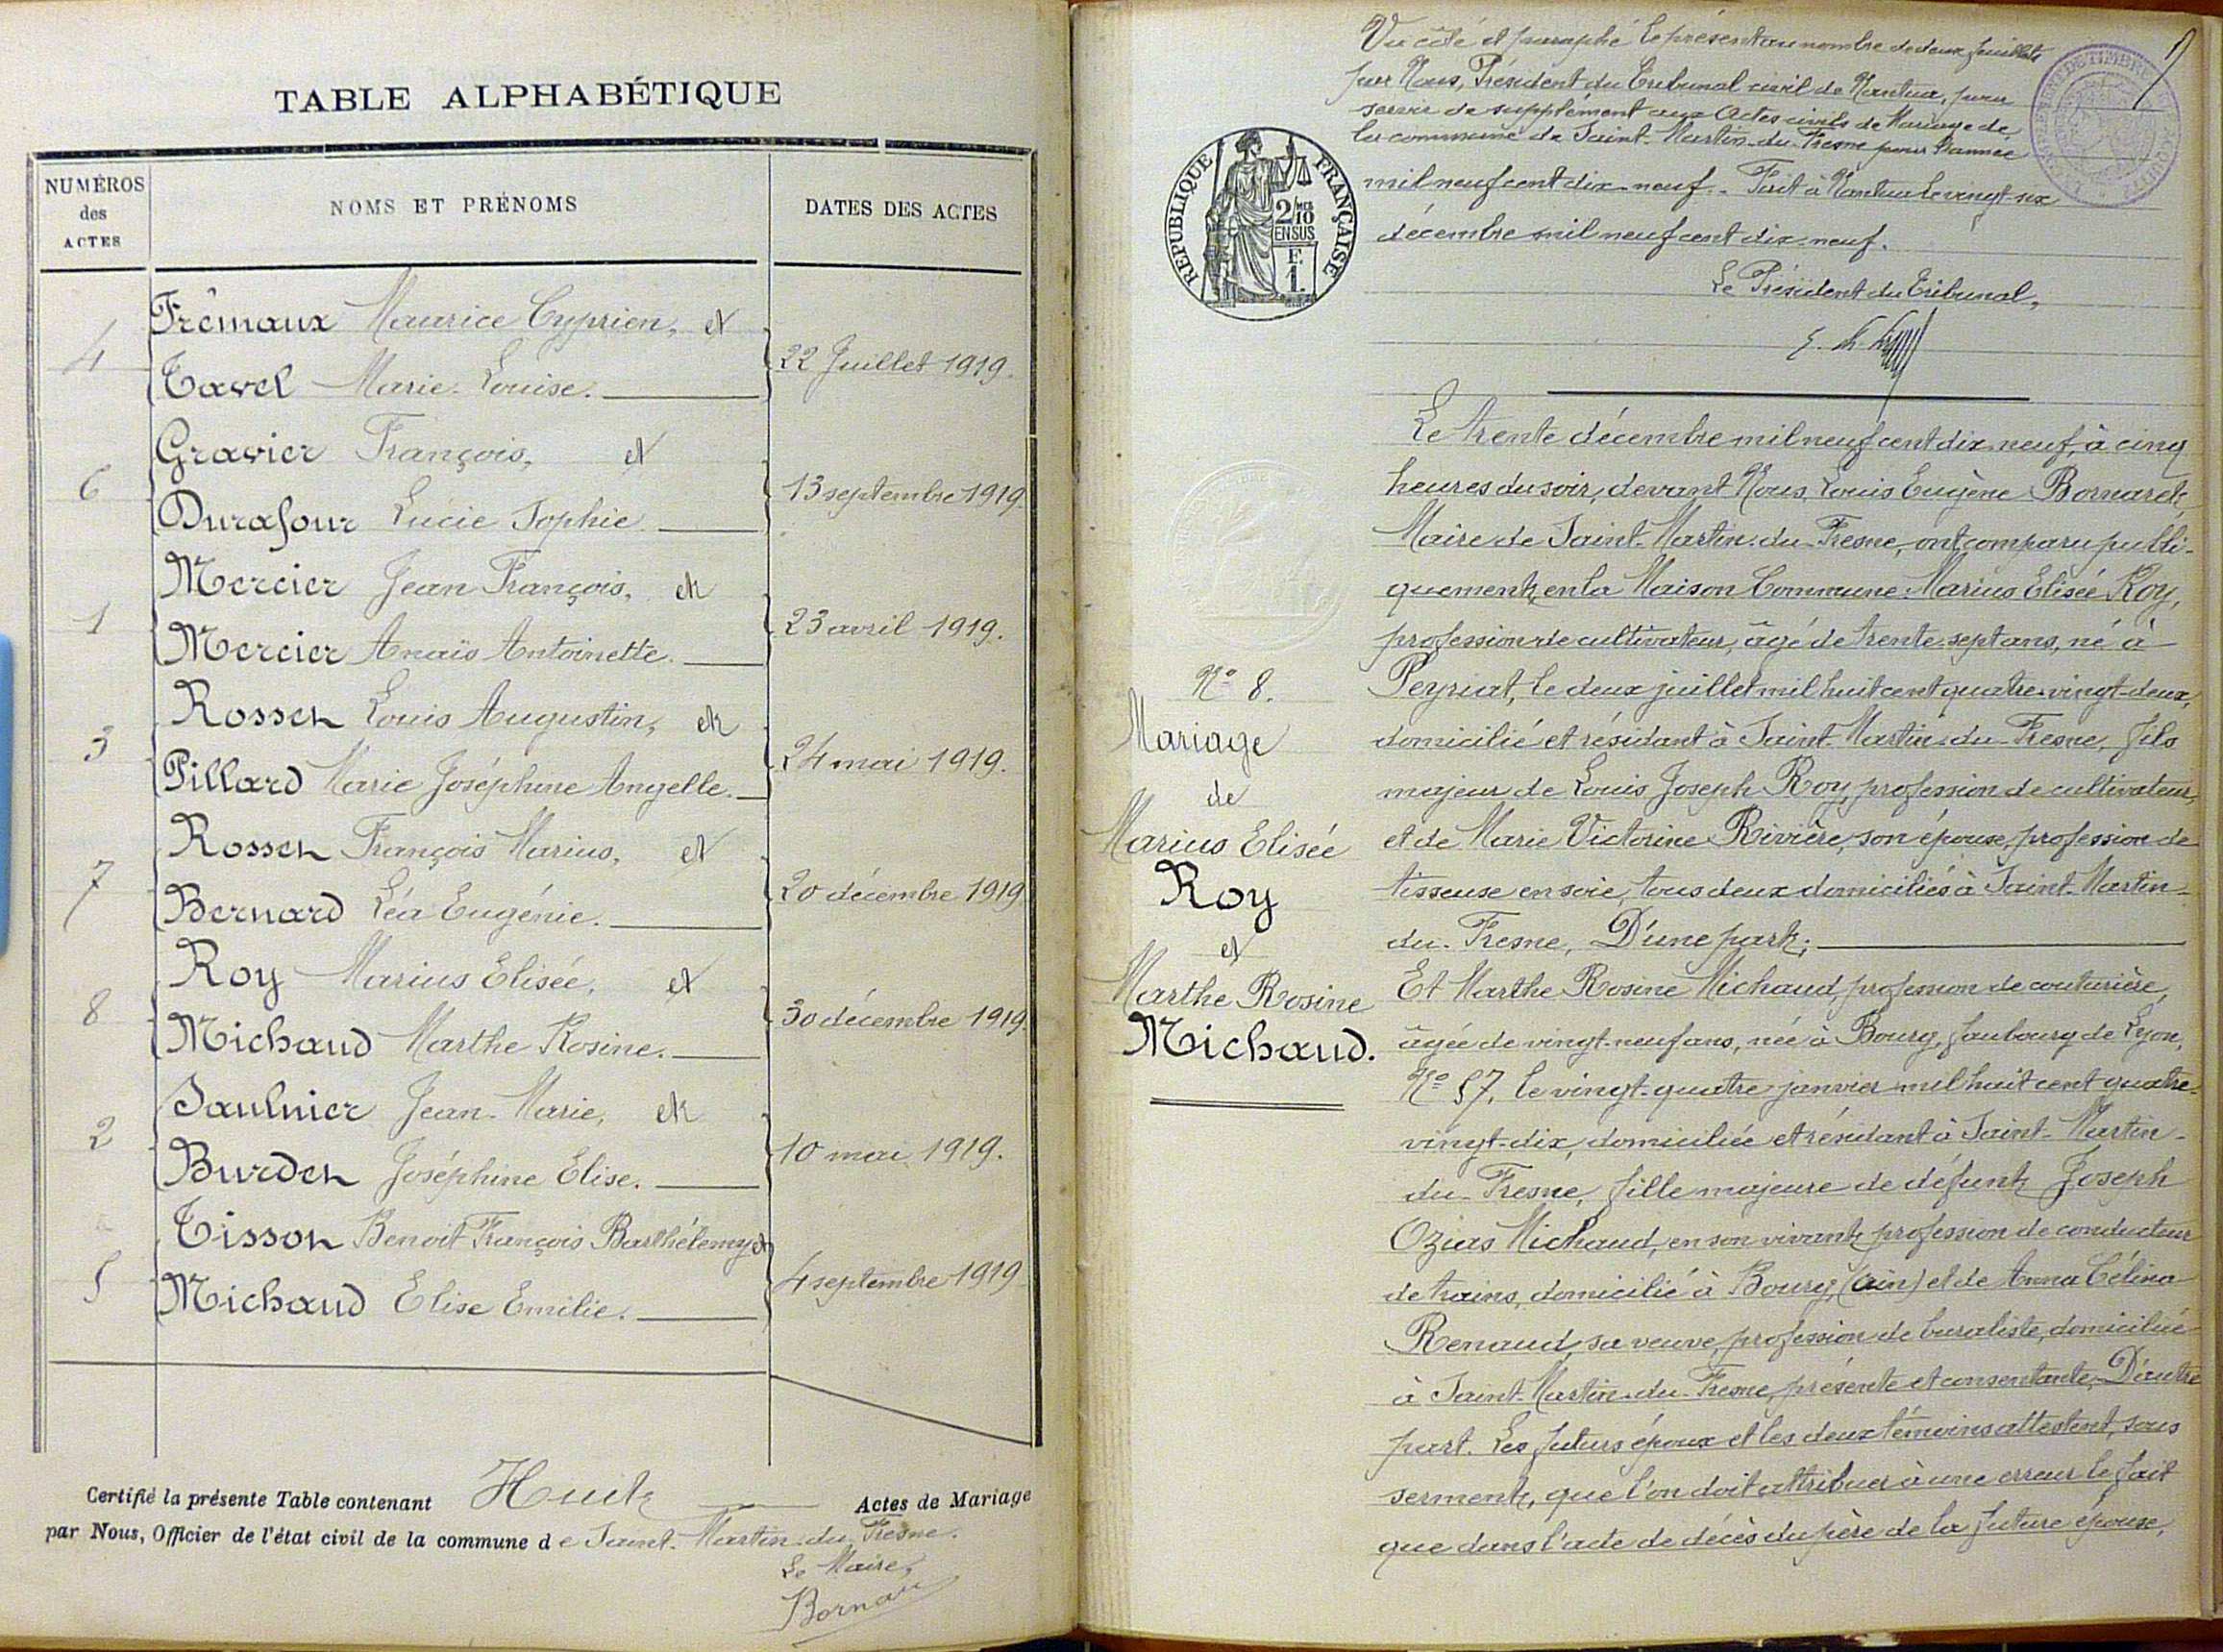 TABLE ALPHABÉTIQUE
NUMÉROS
des
ACTES
NOMS ET PRÉNOMS
DATES DES ACTES
Frémaux Maurice Cyprien, et
4
22 Juillet 1919.
Tavel Marie-Louise.
Gravier François, et
6
13 septembre 1919.
Durafour Lucie Sophie
Mercier Jean François, et
1
23 avril 1919.
Mercier Anaïs Antoinette.
Rosset Louis Augustin, et
3
24 mai 1919.
Pillard Marie Joséphine Angelle.
Rosset François Marius, et
7
20 décembre 1919
Bernard Léa Eugénie.
Roy Marius Elisée, et
8
30 décembre 1919.
Michaud Marthe Rosine.
Saulnier Jean-Marie, et
2
10 mai 1919.
Burdet Joséphine Elise.
Tissot Benoit François Barthélemy et
5
4 septembre 1919
Michaud Elise Emilie.
Certifié la présente Table contenant Huit Actes de Mariage
par Nous, Officier de l'état civil de la commune de Saint-Martin-du-Fresne.
Le Maire,
Bornar
Vu côté et paraphé le présent au nombre de deux feuillets
par Nous, Président du Tribunal civil de Nantua, pour
servir de supplément aux Actes civils de Mariage de
la commune de Saint-Martin-du-Fresne pour l'année
mil neuf cent dix-neuf. Fait à Nantua le vingt-six
décembre mil neuf cent dix-neuf.
Le Président du Tribunal,
RÉPUBLIQUE FRANÇAISE
2/10
EN SUS
F.
1.
Le trente décembre mil neuf cent dix neuf, à cinq
heures du soir, devant Nous, Louis Eugène Bornarel
Maire de Saint-Martin-du-Fresne, ont comparu publi-
quement en la Maison Commune: Marius Elisée Roy,
profession de cultivateur, âgé de trente-sept ans, né à
Peyriat, le deux juillet mil huit cent quatre-vingt-deux,
domicilié et résidant à Saint-Martin-du-Fresne, fils
majeur de Louis Joseph Roy, profession de cultivateur,
et de Marie Victorine Rivière, son épouse, profession de
tisseuse en soie, tous deux domiciliés à Saint-Martin-
du-Fresne, D'une part;
N° 8.
Mariage
de
Marius Elisée
Roy
et
Marthe Rosine
Michaud.
Et Marthe Rosine Michaud, profession de couturière,
âgée de vingt-neuf ans, née à Bourg, faubourg de Lyon,
N° 57, le vingt-quatre janvier mil huit cent quatre-
vingt-dix, domiciliée et résidant à Saint-Martin-
du-Fresne, fille majeure de défunt Joseph
Ozias Michaud, en son vivant profession de conducteur
de trains, domicilié à Bourg, (Ain) et de Anna Célina
Renaud, sa veuve, profession de buraliste, domiciliée
à Saint-Martin-du-Fresne, présente et consentante, D'autre
part. Les futurs époux et les deux témoins attestent, sous
serment, que l'on doit attribuer à une erreur le fait
que dans l'acte de décès du père de la future épouse,